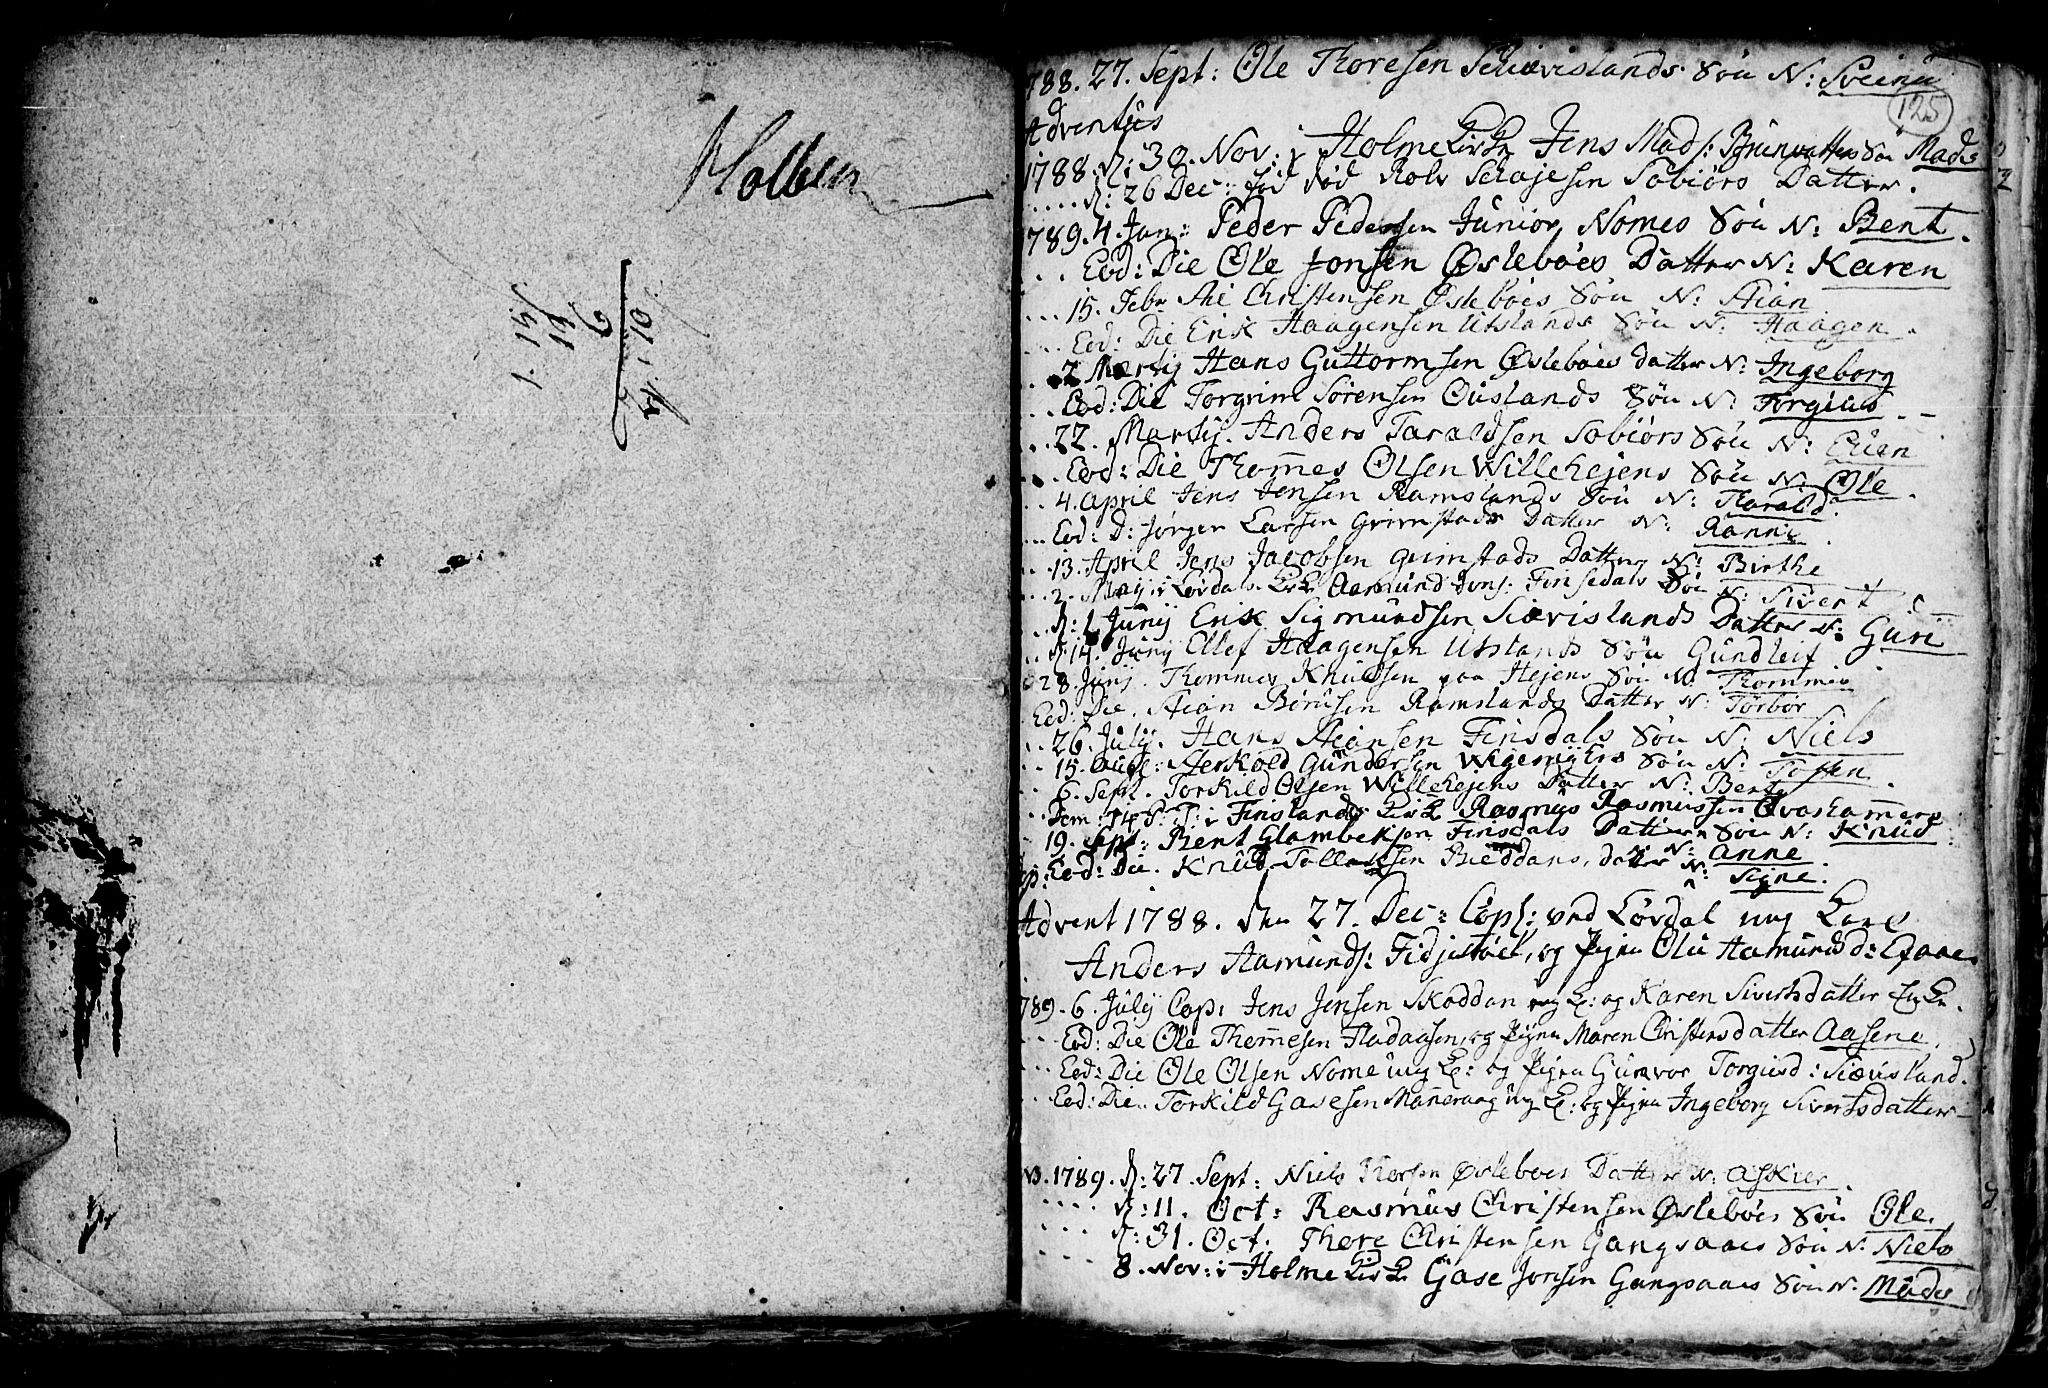 Holben
1. 15
19
6
4. 10
125
1788. 27. Sept: Ole Thoresen Schiævislands Søn N: Sveinu
Adventus
1788. d: 30. Nov: i Holme Kirke Jens Mads: Søn Mads
.... d: 26 Dec: fød død Rolv Schajesen Søbiørs Datter.
1789. 4. Jan: Peder Pedersen Junior, Nomes Søn N: Bent.
... Eod: Die Ole Jonsen Øslebøes Datter N: Karen
... 15. Febr Christensen Øslebøes Søn N: Stian
... Eod: Die Erik Haagensen Utslands Søn N: Haagen.
.. 2 Martij Hans Guttormsen Øslebøes datter N: Ingeborg
... Eod: Die Torgrim Sørensen Ouslands Søn N: Torgius. -
.. 22. Martij. Anders Taraldsen Søbiørs Søn N: Even
.. Eod: Die Thommes Olsen Willehejens Søn N: Ole.
.. 4. April Jens Jensen Ramslands Søn N: Tharald.
... Eod: D: Jørgen Larsen Grimstads Datter N: Ranni.
.. 13. April Jens Jacobsen Grimstads Datter N: Birthe
.. 2. Maij i Løvdals Kirke Aamund Jons: Finsedals Søn N: Sivert
.. d: 1 Junij Erik Sigmundsen Siævislands Datter N: Guri
.. d: 14. Junij Ellef Haagensen Utslands Søn Gundleif
. 28. Junij. Thommes Knudsen paa Hejens Søn N: Thommes
Eod: Die. Stian Børusen Ramslands Datter N: Torbor
.. 26. Julij. Hans Stiansen Finsdals Søn N: Niels
.. 15. Aug: Aerkold Gundersen Søn N:
.. 6. Sept. Torkild Olsen Willehejens Datter N: Berte.
Dom: 14 P. T: i Finslands Kirke Rasmus Rasmussen Qvashammers
.. 19. Sept: Bent Glambeksen Finsdals Datter Søn N: Knud
Eod: Die. Knud Tollaksen Bieddans, datter N: Anne
N: Signe.
Advent 1788. den 27. Dec: Copl: ved Løvdal ung Karl
Anders Aamunds: Fidjestøel, og Pigen Olu Aamundsd:
1789. 6. Julij Cop: Jens Jensen Skoddan ung K: og Karen Sivertsdatter
.... Eod: Die Ole Thommesen Fladaasen, og Pigen Maren Christensdatter Aasene.
.... Eod: Die Ole Olsen Nome ung K: og Pigen Gunvor Torgiusd: Siævisland.
.... Eod: Die. Torkild Gasesen Manerang ung K: og Pigen Ingeborg Sivertsdatter
1789. d: 27. Sept: Niels Thorsen Øslebøes Datter N: Askier.
.... d: 11. Oct: Rasmus Christensen Øslebøes Søn Ole.
.... d: 31. Oct. Thore Christensen Gangsaaes Søn N: Niels
.... 8. Nov: i Holme Kirke Gase Jonsen Gangsaaes Søn N: Mads